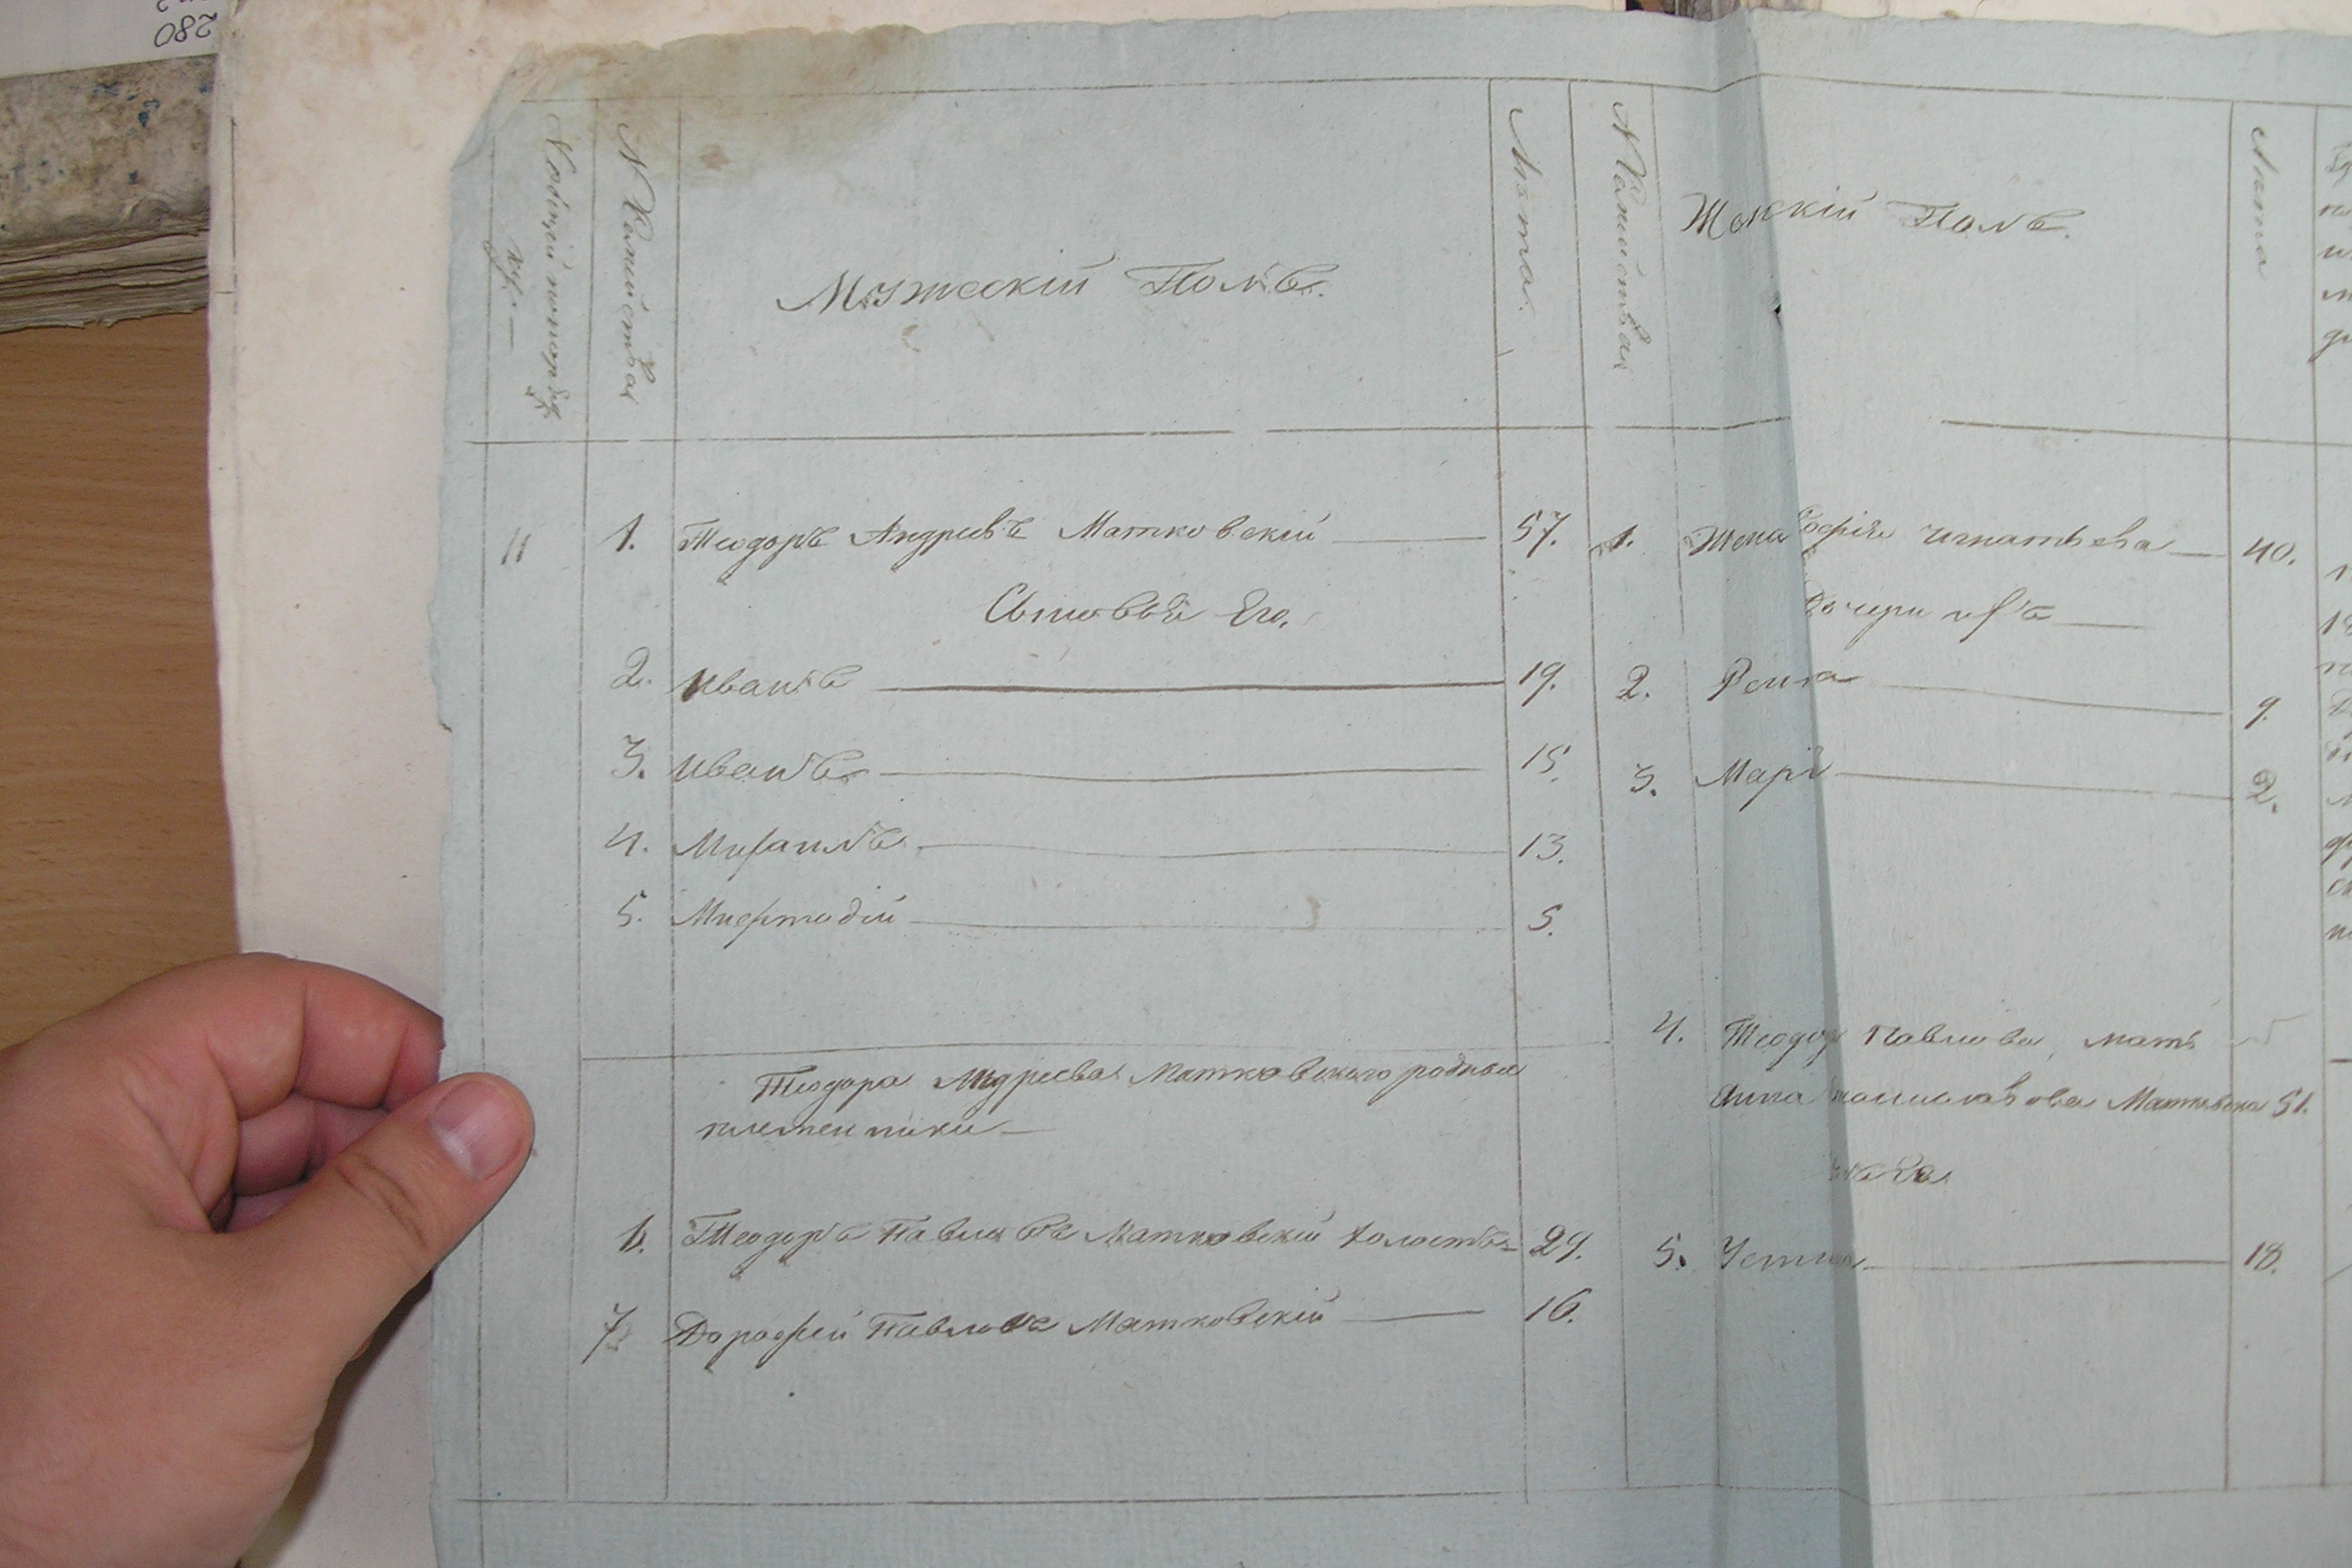 280
N общей
N Фамильная
Мужескій Полъ.
Лѣта.
N Фамильная
Женскій Полъ.
Лѣта
11 1. Теодоръ Андреевъ Матковскій 57. 1. Жена Софія Игнатьева 40.
Сыновья Его. Дочери ихъ
2. Иванъ 19. 2. 9.
3. Иванъ 15. 3. Марія 2.
4. Михаилъ 13.
5. Мифтодій 5.
Теодора Андреева Матковскаго родные
племенники
4. Теодор Павлова мать
Анна Матковска 51.
6. Теодоръ Павловъ Матковскій холостъ 29. 5. 18.
7. Дорофей Павловъ Матковскій 16.